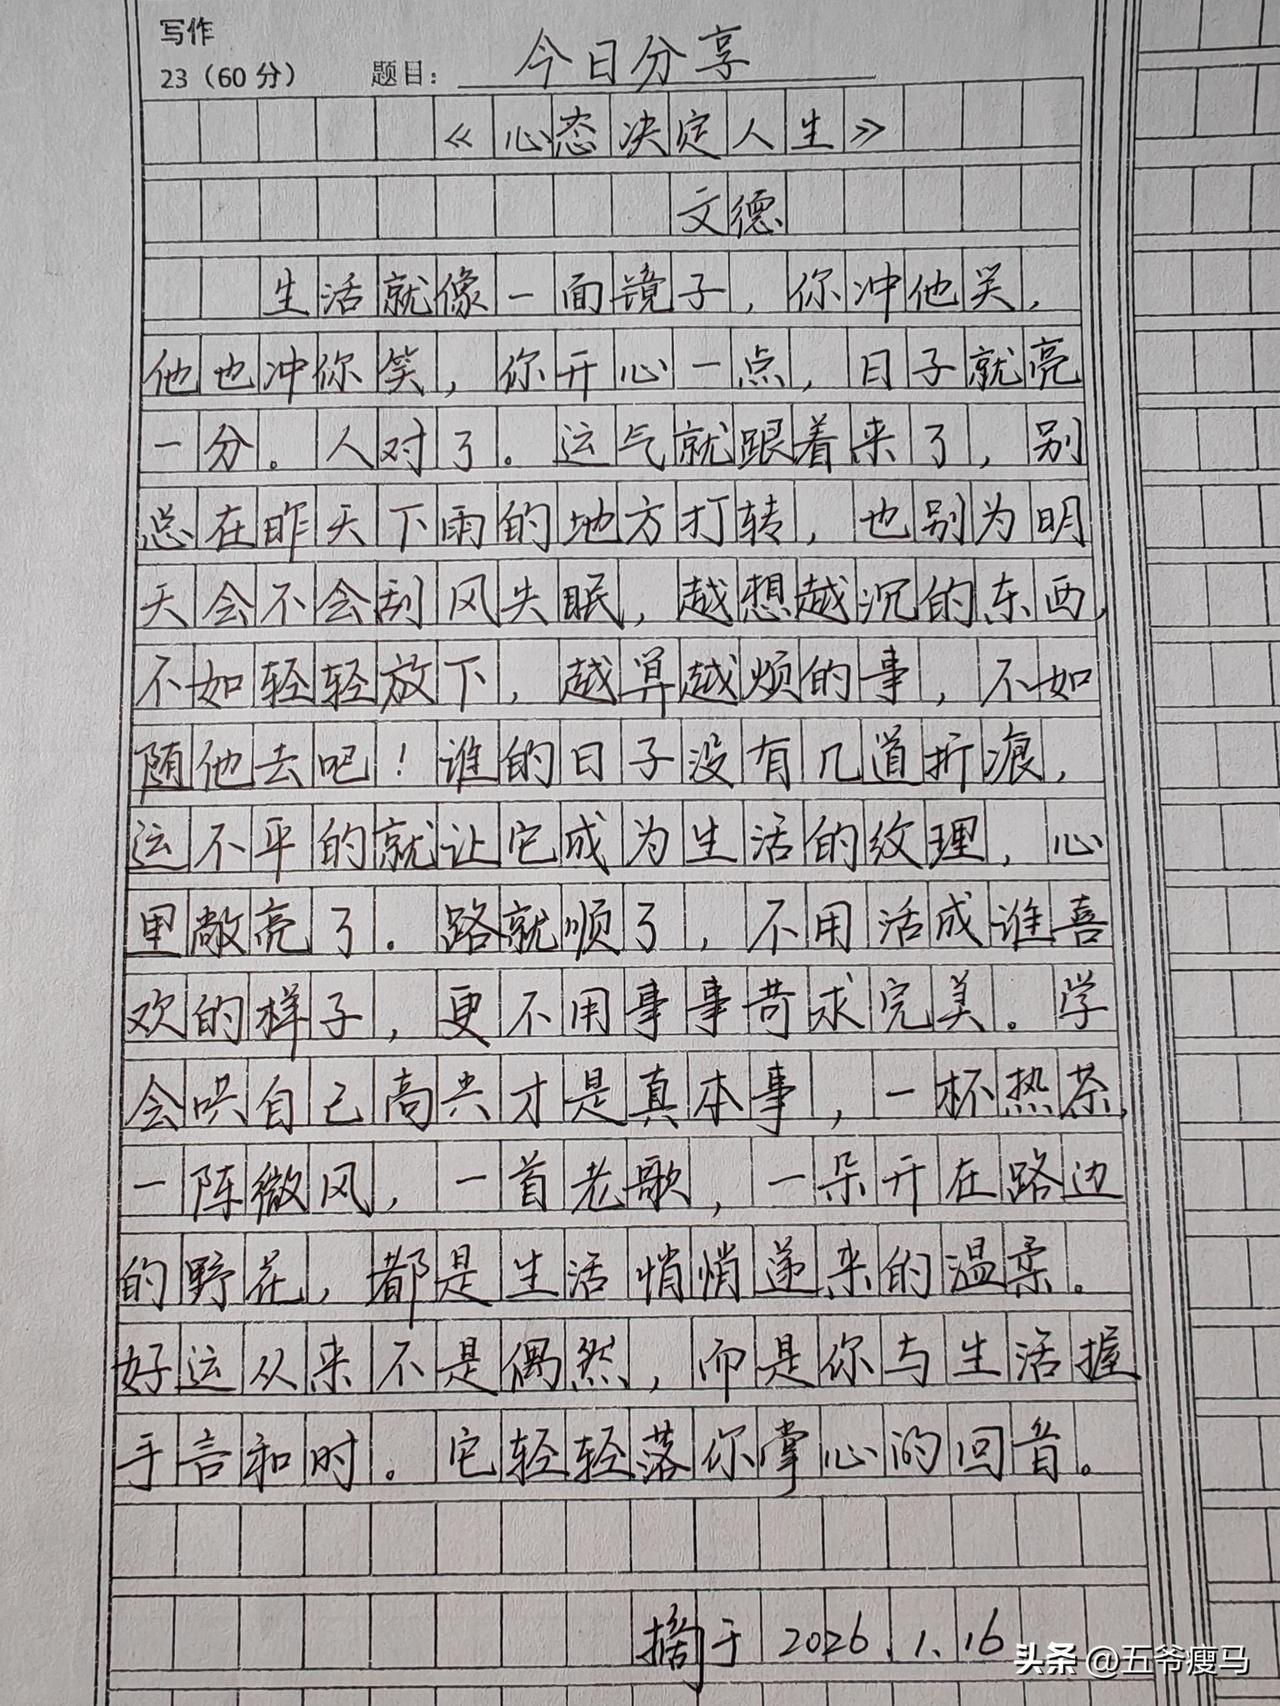 写作
23（60分） 题目：今日分享
《心态决定人生》
文德
生活就像一面镜子，你冲他笑，
他也冲你笑，你开心一点，日子就亮
一分。人对了。运气就跟着来了，别
总在昨天下雨的地方打转，也别为明
天会不会刮风失眠，越想越沉的东西，
不如轻轻放下，越算越烦的事，不如
随他去吧！谁的日子没有几道折痕，
运不平的就让它成为生活的纹理，心
里敞亮了。路就顺了，不用活成谁喜
欢的样子，更不用事事苛求完美。学
会哄自己高兴才是真本事，一杯热茶，
一阵微风，一首老歌，一朵开在路边
的野花，都是生活悄悄递来的温柔。
好运从来不是偶然，而是你与生活握
手言和时。它轻轻落你掌心的回首。
摘于2026.1.16
头条@五爷瘦马